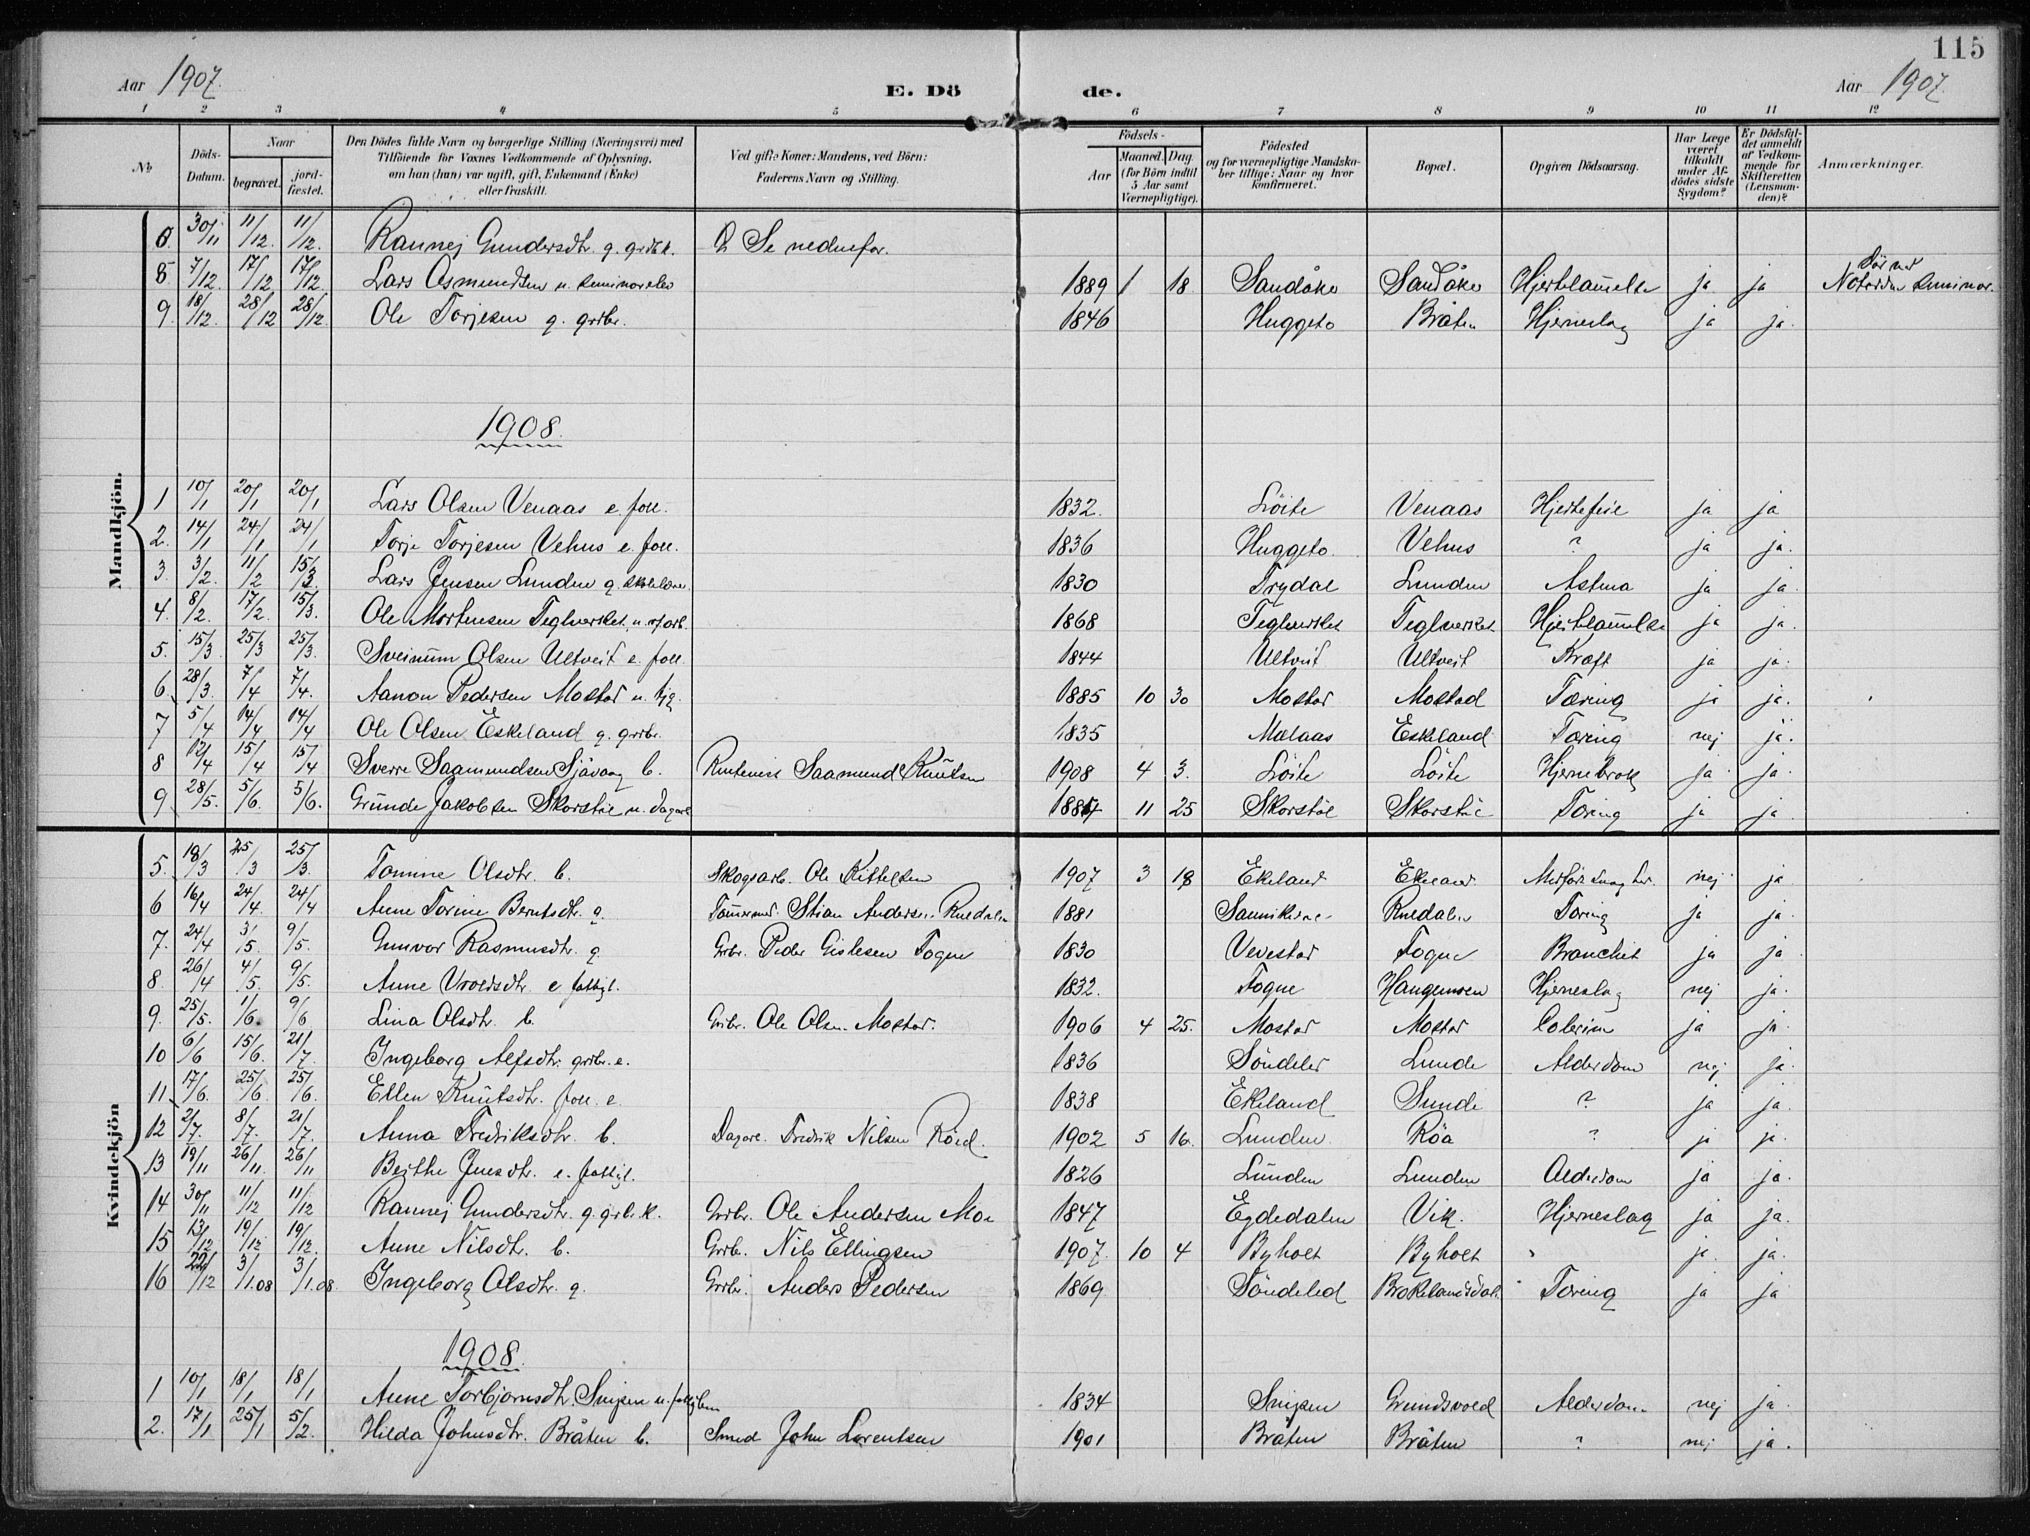 115
Aar 1907. E. Dö de. Aar 1907.
1 2 3 4 5 6 7 8 9 10 11 12
No Döds-Datum. Naar begravet. jord-fæstet. Den Dödes fulde Navn og borgerlige Stilling (Næringsvei) med Tilföiende for Voxnes Vedkommende af Oplysning, om han (hun) var ugift, gift, Enkemand (Enke) eller fraskilt. Ved gifte Koner: Mandens, ved Börn: Faderens Navn og Stilling. Födsels- Aar Maaned. Dag. (for Börn indtil 5 Aar samt Værnepligtige). Födested og for værnepligtige Mandskaber tillige: Naar og hvor konfirmeret. Bopæl. Opgiven Dödsaarsag. Har Læge været tilkaldt under Afdödes sidste Sygdom? Er Dödsfaldet anmeldt af Vedkommende for Skifteretten (Lensmanden)? Anmærkninger.
Mandkjön.
30/11 11/12. 11/12. Rannej Gundersdtr. g. grdbk. Se nedenfor.
8 7/12. 17/12 17/12. Lars Osmundsen u. seminarelev 1889 1 18 Sandåker Sandåker Hjertelammelse ja ja Notodden Seminar.
9. 18/12. 28/12 28/12 Ole Torjesen g. grdbr. 1846 Huggeto Bråten Hjerneslag ja ja.
1908.
1 10/1 20/1 20/1 Lars Olsen Venaas e. foll. 1832. Löite Venaas Hjertefeil ja ja
2. 14/1 24/1 24/1 Torje Torjesen Vehus e. foll. 1836 Huggeto Vehus ? ja ja.
3. 3/2. 11/2 15/3. Lars Jensen Lunden g. 1830 Trydal Lunden Astma ja ja.
4. 8/2. 17/2. 15/3. Ole Mortensen Teglverket, u. 1868 Teglverket Teglverket Hjertelammelse ja ja.
5. 15/3. 25/3 25/3. Sveinum Olsen Ultveit e. foll. 1844 Ultveit Ultveit Kræft ja ja.
6. 28/3. 7/4 7/4. Aanon Pedersen Mostad u. 1885 10 30 Mostad Mostad Tæring ja ja.
7 5/4 14/4 14/4 Ole Olsen Eskeland g. grdbr. 1835 Mælaas Eskeland Tæring nej ja.
8 12/4 15/4 15/4 Sverre Saamundsen Sjåvaag b. Saamund Knutsen 1908 4 3. Löite Löite ja ja.
9 28/5. 5/6. 5/6. Grunde Jakobsen Skorstöl u. 1887 11 25 Skorstöl Skorstöl Tæring ja ja.
Kvindekjön
5. 18/3 25/3 25/3. Tomine Olsdtr. b. Skogsarb. Ole Kittelsen 1907 3 18 Ekeland Ekeland nej ja
6 16/4 24/4. 24/4 Anne Torine Berntsdtr. g. Tömmermd. Stian Anderssen Knedalen 1881 Knedalen Tæring ja ja
7. 24/4 3/5. 9/5. Gunvor Rasmusdtr. g Grbr. Peder Gislesen Fogne 1830 Vevestad Fogne Bronchit ja ja
8. 26/4 4/5. 9/5. Anne Vroldsdtr. e fattigl. 1832. Fogne Haugemoen Hjerneslag nej ja.
9. 25/5. 1/6. 9/6 Lina Olsdtr. b. Grbr. Ole Olsen Mostad. 1906 4 25. Mostad Mostad Colerin ja ja.
10 6/6 15/6. 21/7. Ingeborg Alfsdtr. grdbr. e. 1836 Söndeled Lunde Alderdom nej ja.
11. 17/6. 25/6. 25/6. Ellen Knutsdtr. foll. e. 1838 Ekeland Sunde ? ja ja.
12 2/7. 8/7. 21/7. Anna Fredriksdtr. b. Dagarb. Fredrik Nilsen Röed. 1902 5 16. Lunden Röa ? ja ja.
13 19/11 26/11. 26/11 Berthe Jensdtr. e. fattigl. 1826 Lunden Lunden Alderdom ja ja.
14 30/11 11/12 11/12 Rannej Gundersdtr. g. grb. k. Grdbr. Ole Andersen Moe 1847 Egdedalen Vik. Hjerneslag ja ja.
15 13/12 19/12 19/12. Anne Nilsdtr. b. Grdb. Nils Ellingsen 1907. 10 4 Byholt Byholt ja. ja.
16 22/12 3/1.08 3/1.08. Ingeborg Olsdtr. g. Grbr. Anders Pedersen 1869 Söndeled Brokelandsdal. Tæring ja ja
1908.
1 10/1 18/1 18/1 Anne Torbjørnsdtr. Snipen u. 1834 Snipen Grundsvold Alderdom nej ja.
2. 17/1. 25/1 5/2. Hilda Johnsdtr. Bråten b. Smed John Lorentsen 1901 Bråten Bråten ? nej ja.